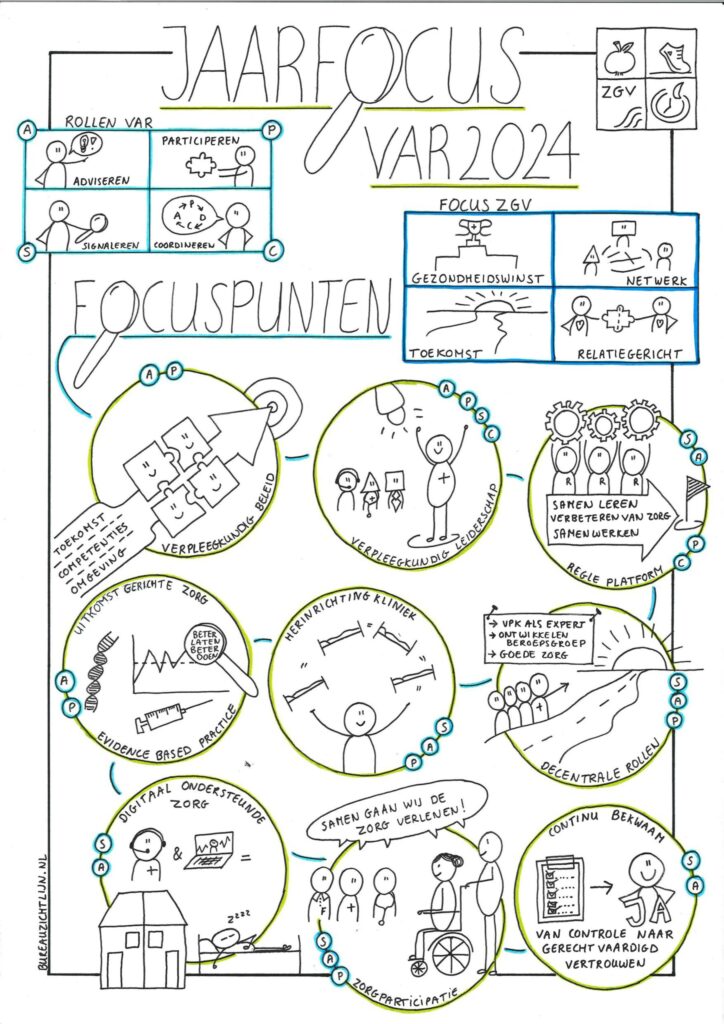 JAARFOCUS
VAR 2024
ZGV
ROLLEN VAR
A
P
ADVISEREN
PARTICIPEREN
SIGNALEREN
P
A D
C
COÖRDINEREN
S
C
FOCUS ZGV
GEZONDHEIDSWINST
NETWERK
TOEKOMST
RELATIEGERICHT
FOCUSPUNTEN
A P
TOEKOMST
COMPETENTIES
OMGEVING
VERPLEEGKUNDIG BELEID
A P S C
VERPLEEGKUNDIG LEIDERSCHAP
S A
R R R
SAMEN LEREN
VERBETEREN VAN ZORG
SAMENWERKEN
P C
REGLE PLATFORM
UITKOMST GERICHTE ZORG
BETER
LATEN
BETER
DOEN
A P
EVIDENCE BASED PRACTICE
HERINRICHTING KLINIEK
S A P
→ VPK ALS EXPERT
→ ONTWIKKELEN
BEROEPSGROEP
→ GOEDE ZORG
S A P
DECENTRALE ROLLEN
DIGITAAL ONDERSTEUNDE
ZORG
S A
& =
ZZZZ
SAMEN GAAN WIJ DE
ZORG VERLENEN!
F
S A P
ZORGPARTICIPATIE
CONTINU BEKWAAM
S A
→
JA
VAN CONTROLE NAAR
GERECHTVAARDIGD
VERTROUWEN
BUREAUZICHTLIJN.NL